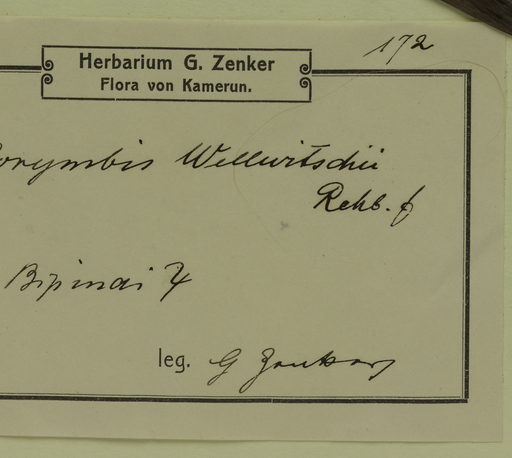 172
Herbarium G. Zenker
Flora von Kamerun.
orymbis Welwitschii
Rchb. f
Bipindi ♃
leg. G Zenker